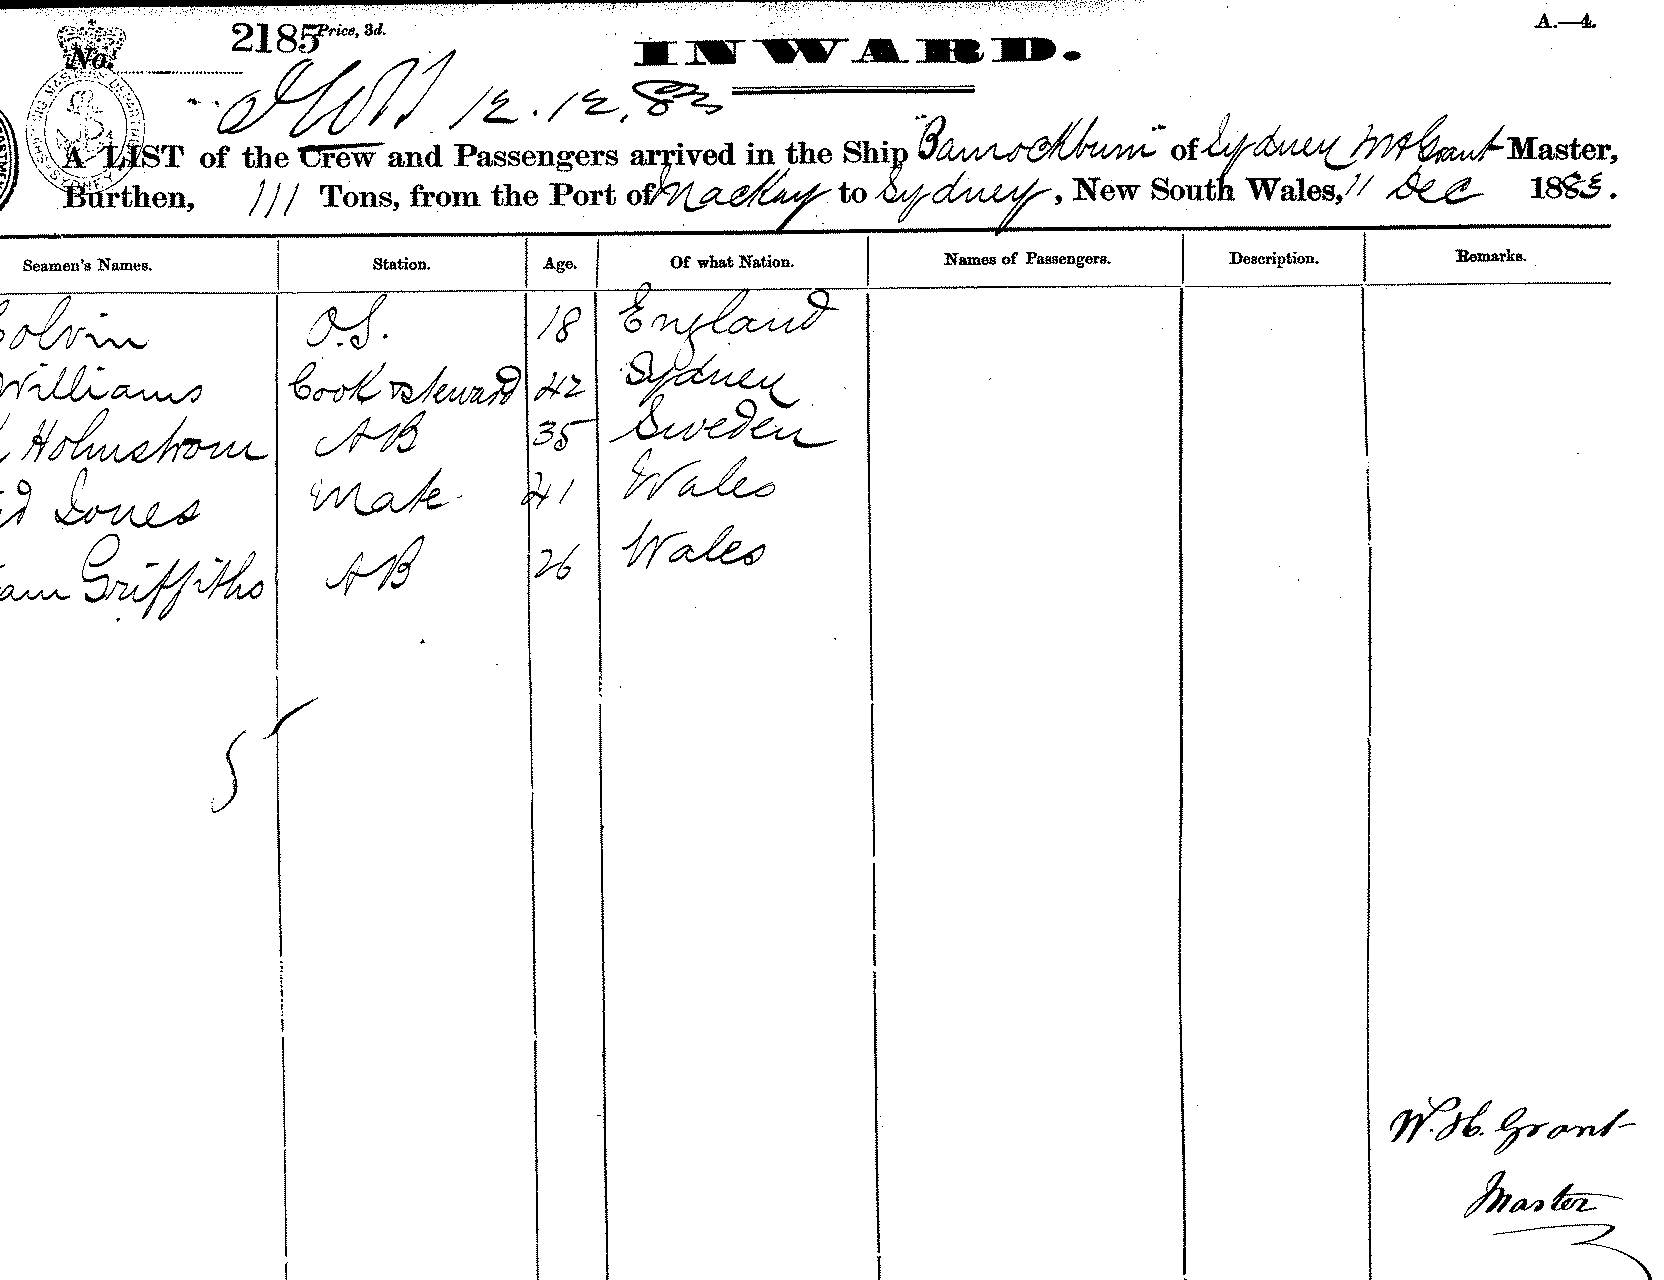 No. 2185 Price, 3d. A.—4.
INWARD.
12.12.83
A LIST of the Crew and Passengers arrived in the Ship "Bannockburn" of Sydney W H Grant Master,
Burthen, 111 Tons, from the Port of Mackay to Sydney, New South Wales, 11 Dec 1883.
Seamen's Names. Station. Age. Of what Nation. Names of Passengers. Description. Remarks.
Colvin O.S. 18 England
Williams Cook & steward 42 Sydney
Holmstrom AB 35 Sweden
d Jones Mate 41 Wales
am Griffiths AB 26 Wales
5
W. H. Grant
Master